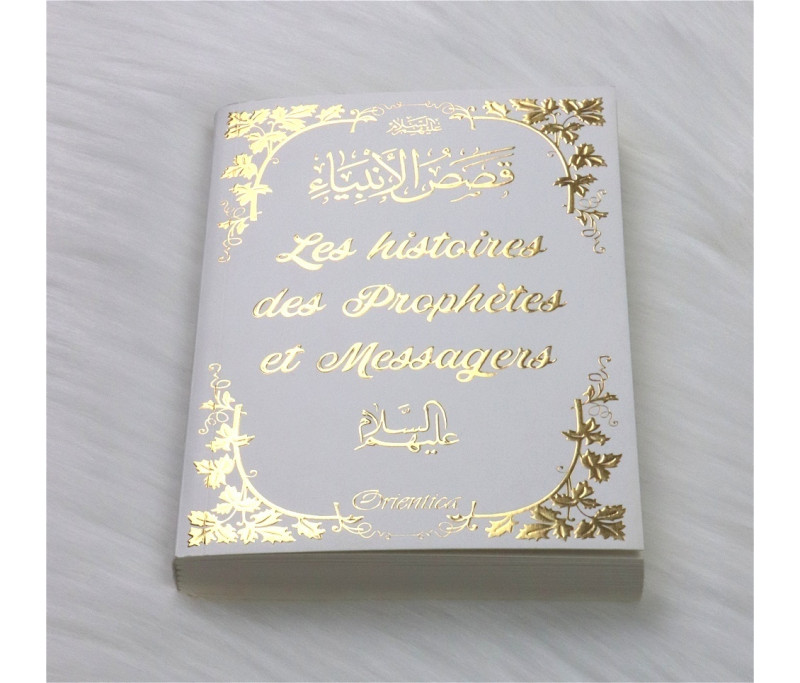 قَصَصُ الأَنْبِيَاءِ
Les histoires
des Prophètes
et Messagers
عليهم السَّلام
Orientica